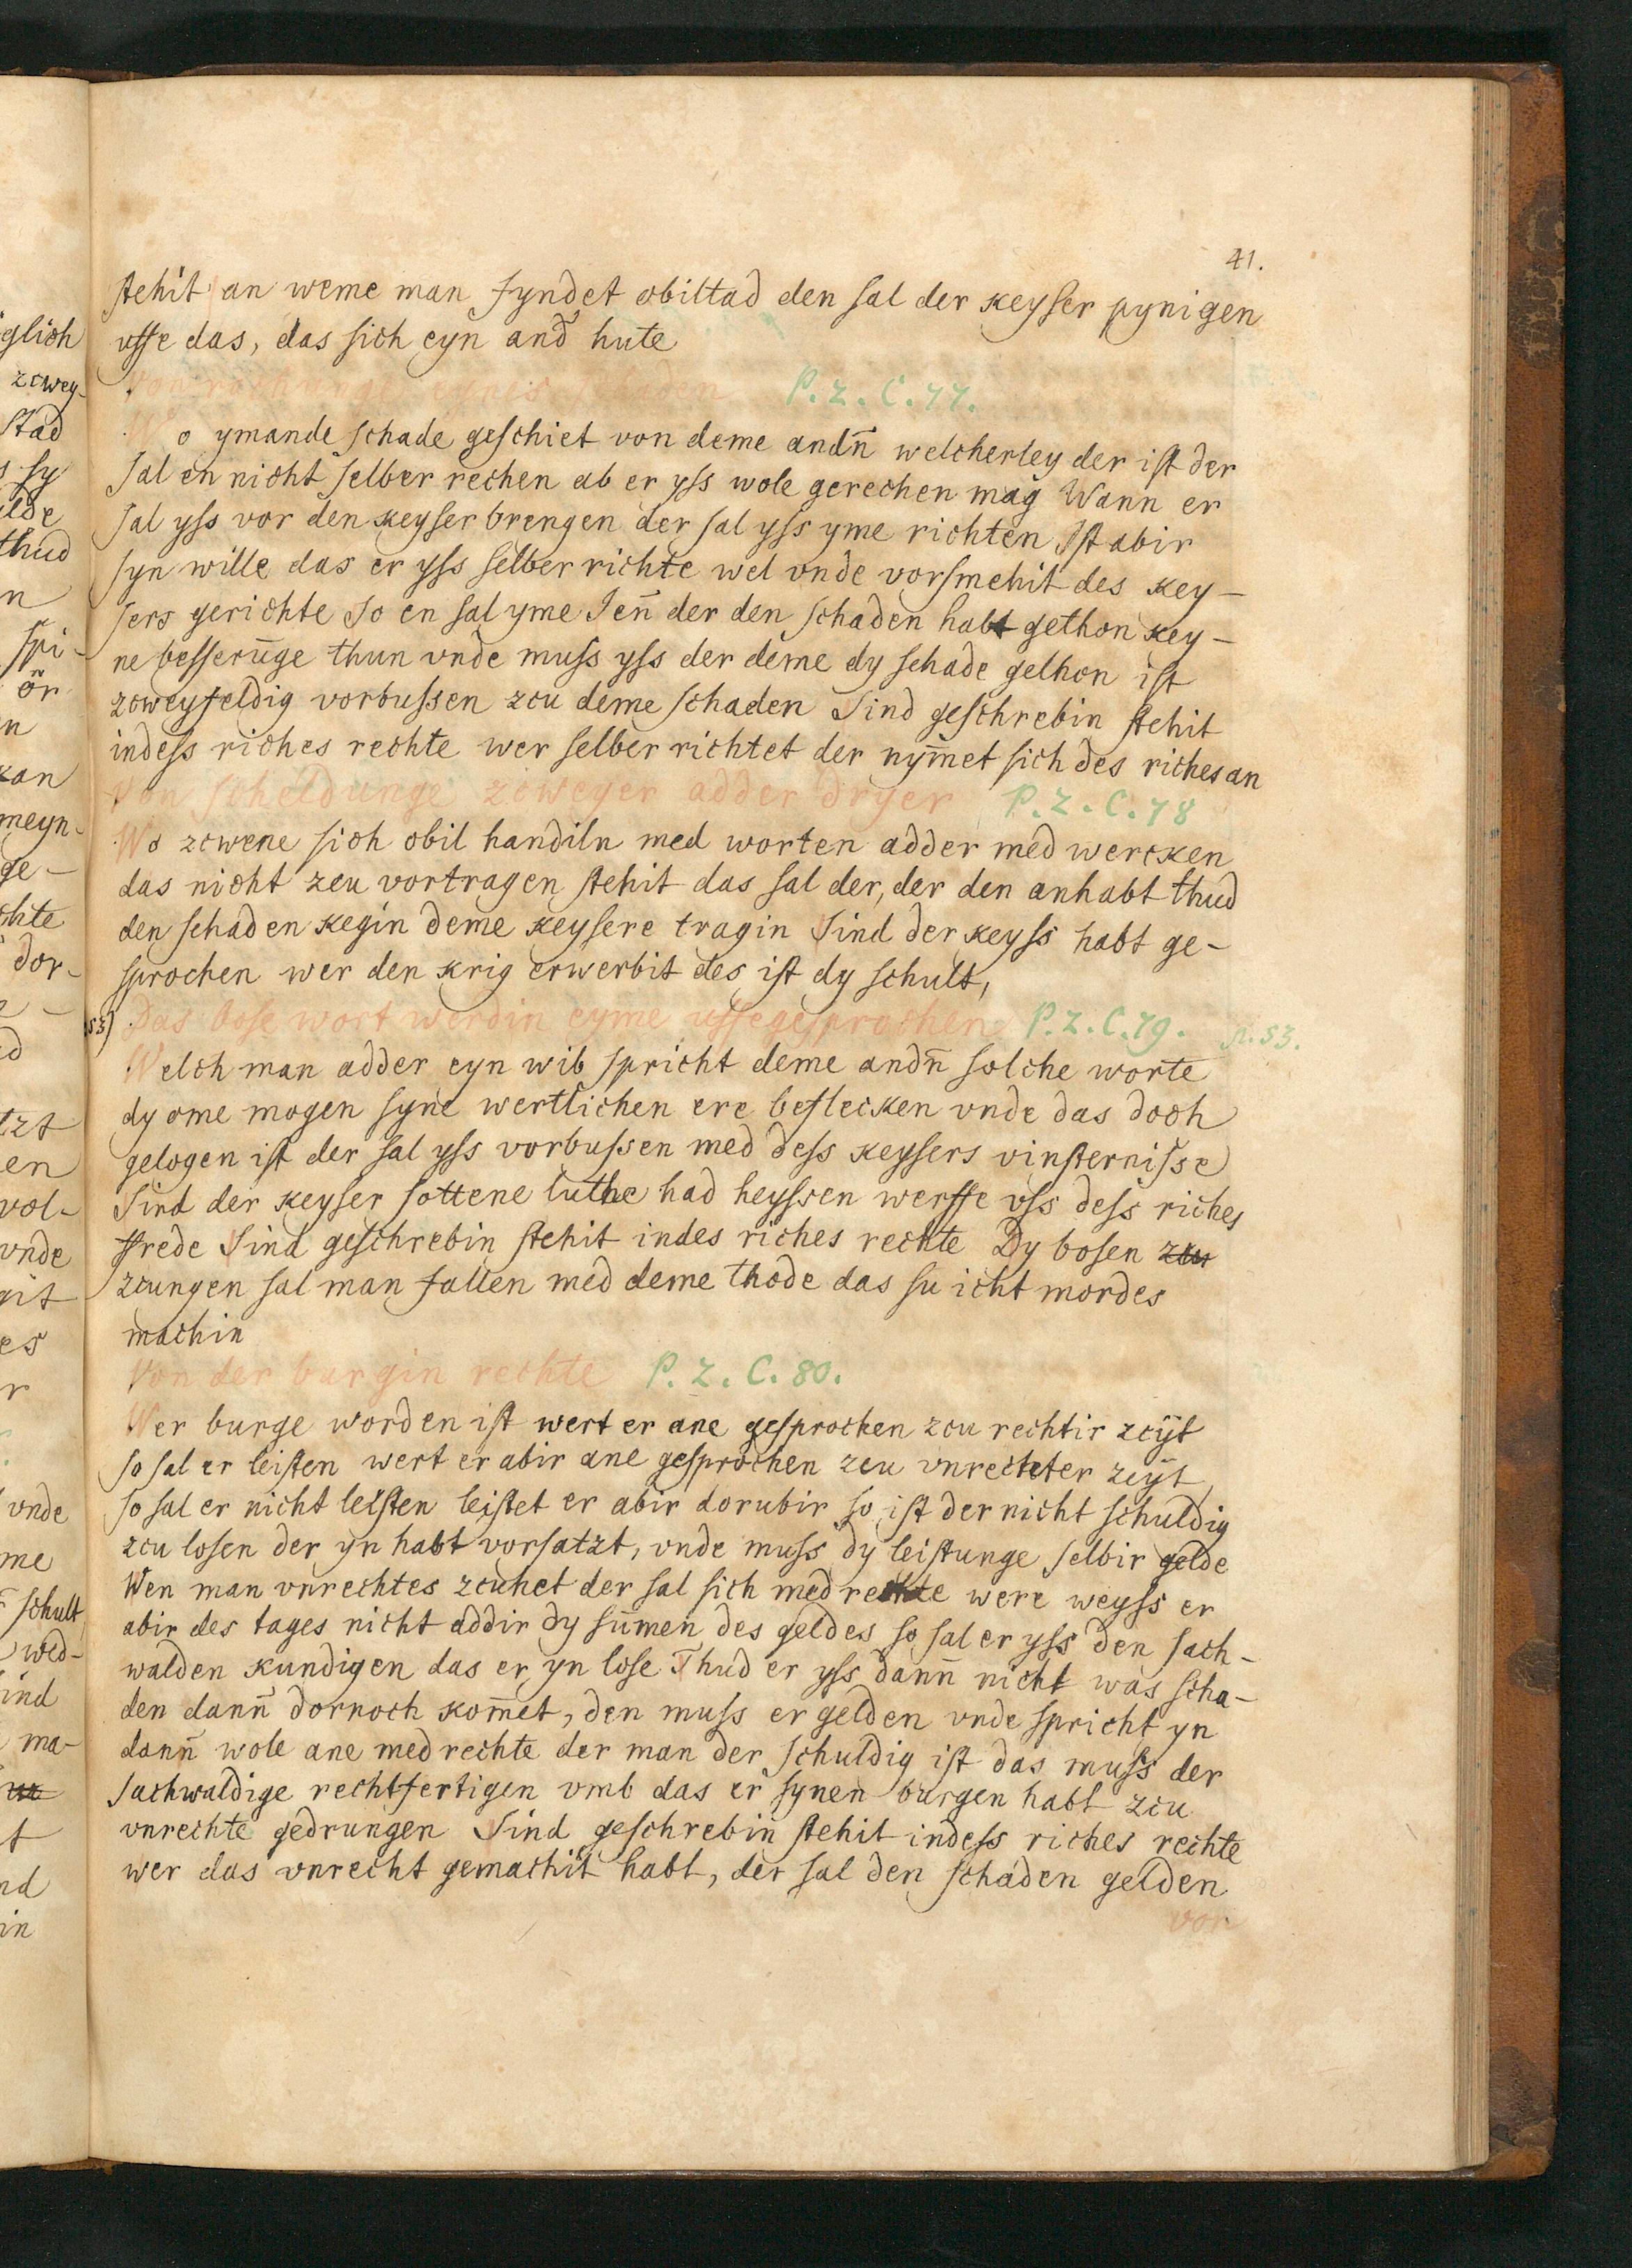 41.
stehit an weme man fyndet obiltad den sal der keyser pynigen
uffe das, das sich eyn and̄ hute
P. 2. C. 77.
Wo ymande schade geschiet von deme andn̄ welcherley der ist der
sal en nicht selber rechen ab er yss wole gerechen mag Wann er
sal yss vor den keyser brengen der sal yss yme richten Ist abir
syn wille das er yss selber richte wel vnde vorsmehit des key-
sers gerichte So en sal yme Ien̄ der den schaden habt gethon key-
ne besserūge thun vnde muss yss der deme dy schade gethon ist
zcweyfeldig vorbussen zcu deme schaden Sind geschrebin stehit
indess riches rechte wer selber richtet der nym̄et sich des riches an
Von scheldunge zcweyer adder dryer P. 2. C. 78
Wo zcwene sich obil handiln med worten adder med wercken
das nicht zcu vortragen stehit das sal der, der den anhabt thud
den schaden kegin deme keysere tragin Sind der keyss habt ge-
sprochen wer den krig erwerbit des ist dy schult,
53) Das bose wort werdin eyme uffegesprochen P. 2. C. 79. n. 53.
Welch man adder eyn wib spricht deme andn̄ solche worte
dy ome mogen syne wertlichen ere beflecken vnde das doch
gelogen ist der sal yss vorbussen med dess keysers vinsternisse
Sind der keyser sottene luthe had heyssen werffe vss dess riches
ffrede Sind geschrebin stehit indes riches rechte Dy bosen zcu
zcungen sal man fallen med deme thode das su icht mordes
machin
Von der burgin rechte P. 2. C. 80.
Wer burge worden ist wert er ane gesprochen zcu rechtir zcijt
so sal er leisten wert er abir ane gesprochen zcu vnrecteter zcijt
so sal er nicht leisten leistet er abir dorubir so ist der nicht schuldig
zcu losen der yn habt vorsatzt, vnde muss dy leistunge selbir gelde
Wen man vnrechtes zcuhet der sal sich med rechte were weyss er
abir des tages nicht addir dy sum̄en des geldes so sal er yss den sach-
walden kundigen das er yn lose Thud er yss dann̄ nicht was scha-
den dann̄ dornoch kom̄et, den muss er gelden vnde spricht yn
dann̄ wole ane med rechte der man der schuldig ist das muss der
sachwaldige rechtfertigen vmb das er synen burgen habt zcu
vnrechte gedrungen Sind geschrebin stehit indess riches rechte
wer das vnrecht gemachit habt, der sal den schaden gelden
von